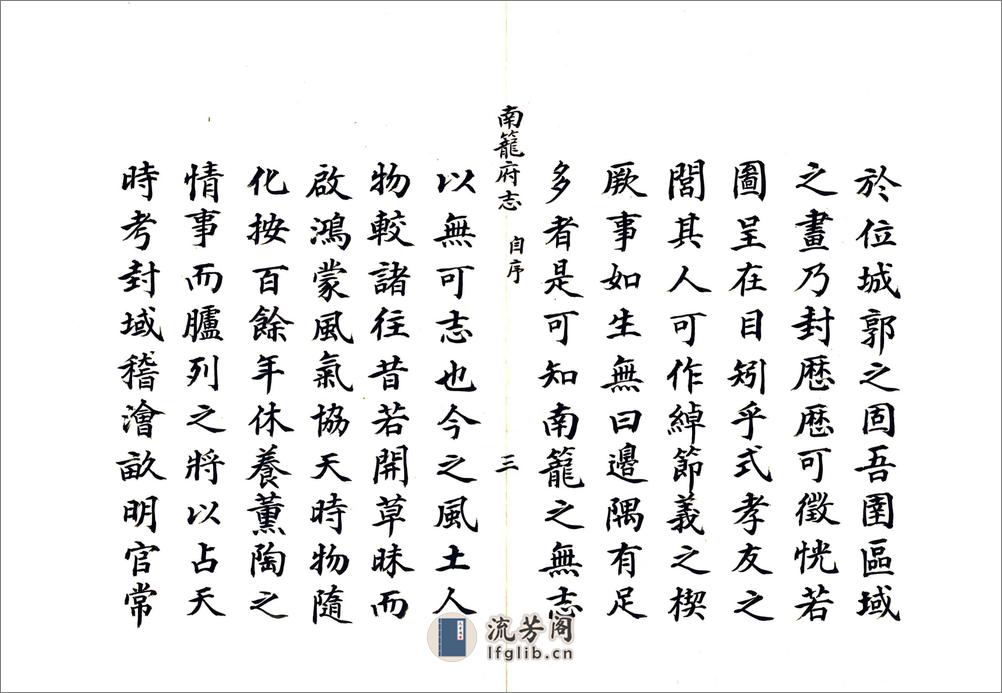 於位城郭之固吾圉區域
之畫乃封歷歷可徵恍若
圖呈在目矧乎式孝友之
閭其人可作綽節義之楔
厥事如生無曰邊隅有足
多者是可知南籠之無志
南籠府志 自序 三
以無可志也今之風土人
物較諸往昔若開草昧而
啟鴻蒙風氣協天時物隨
化按百餘年休養薰陶之
情事而臚列之將以占天
時考封域稽澮畝明官常
流芳阁
lfglib.cn